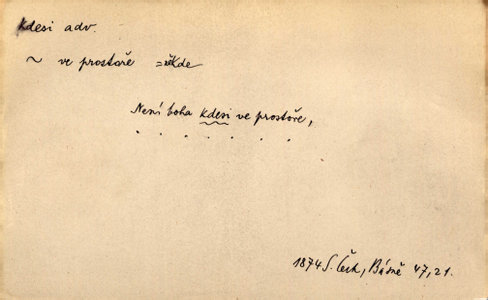 Kdesi adv.
~ ve prostoře = někde
Není boha kdesi ve prostoře,
. . . . . . .
1874 S. Čech, Básně 47,21.